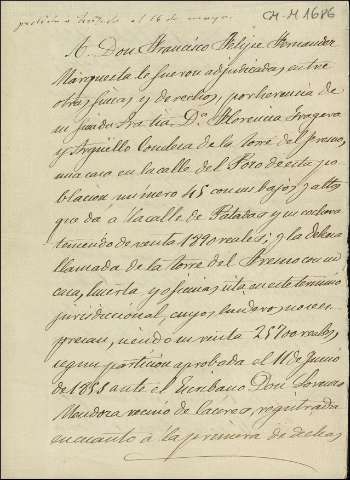 CM-M 1686
A Don Francisco Felipe Fernandez
Marquesta le fueron adjudicadas entre
otras fincas y derechos, por herencia de
su finada tia Dª Florencia
y Argüello Condesa de la torre del fresno,
una casa en la calle del Pozo de esta po
blacion número 45 con sus bajos y altos
que da a la calle de Patadas y su cochera
teniendo de renta 1890 reales; y la dehesa
llamada de la torre del Fresno con su
casa, huerta y oficinas, sita en este termino
jurisdiccional, cuyos linderos no se es
presan, siendo su renta 25700 reales,
segun particion aprobada el 11 de Junio
de 1858 ante el Escribano Don Lorenzo
Mendoza vecino de Caceres, registrada
en cuanto á la primera de dichas